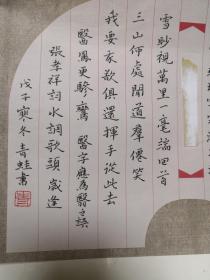 雪眇視萬里一毫端回首
三山何處聞道群僊笑
我要我欲俱還揮手從此去
醫鳳更驂鸞 醫字應為翳之誤
張孝祥詞水調歌頭 歲逢
戊子寒冬 青蛙書